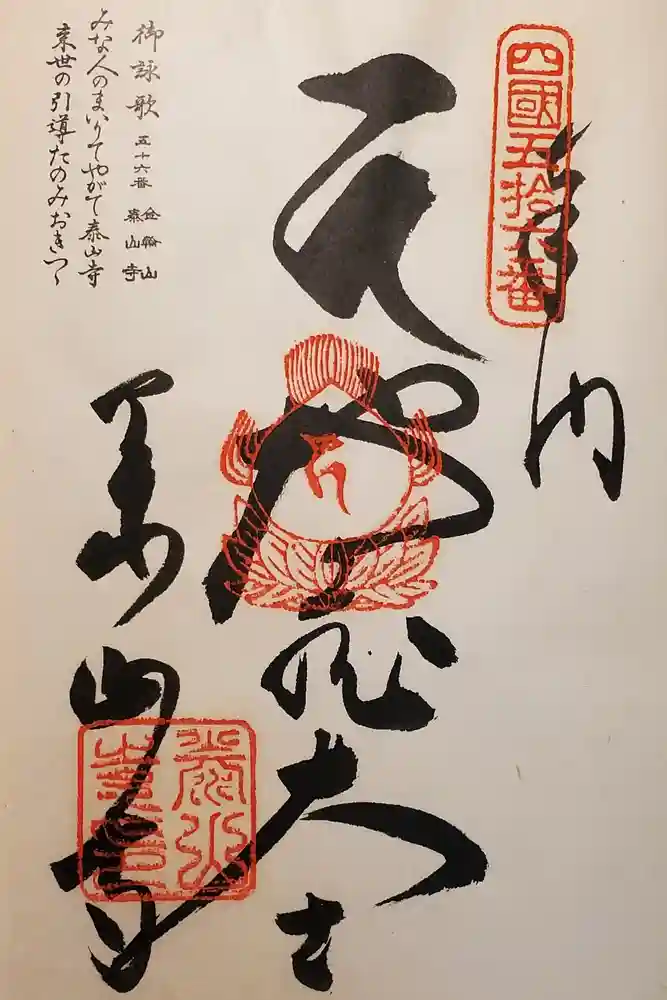 奉納
四國五拾六番
大士
泰山寺
泰山
御詠歌 五十六番 金輪山 泰山寺
みな人のまいりてやがて泰山寺
来世の引導たのみおきつゝ